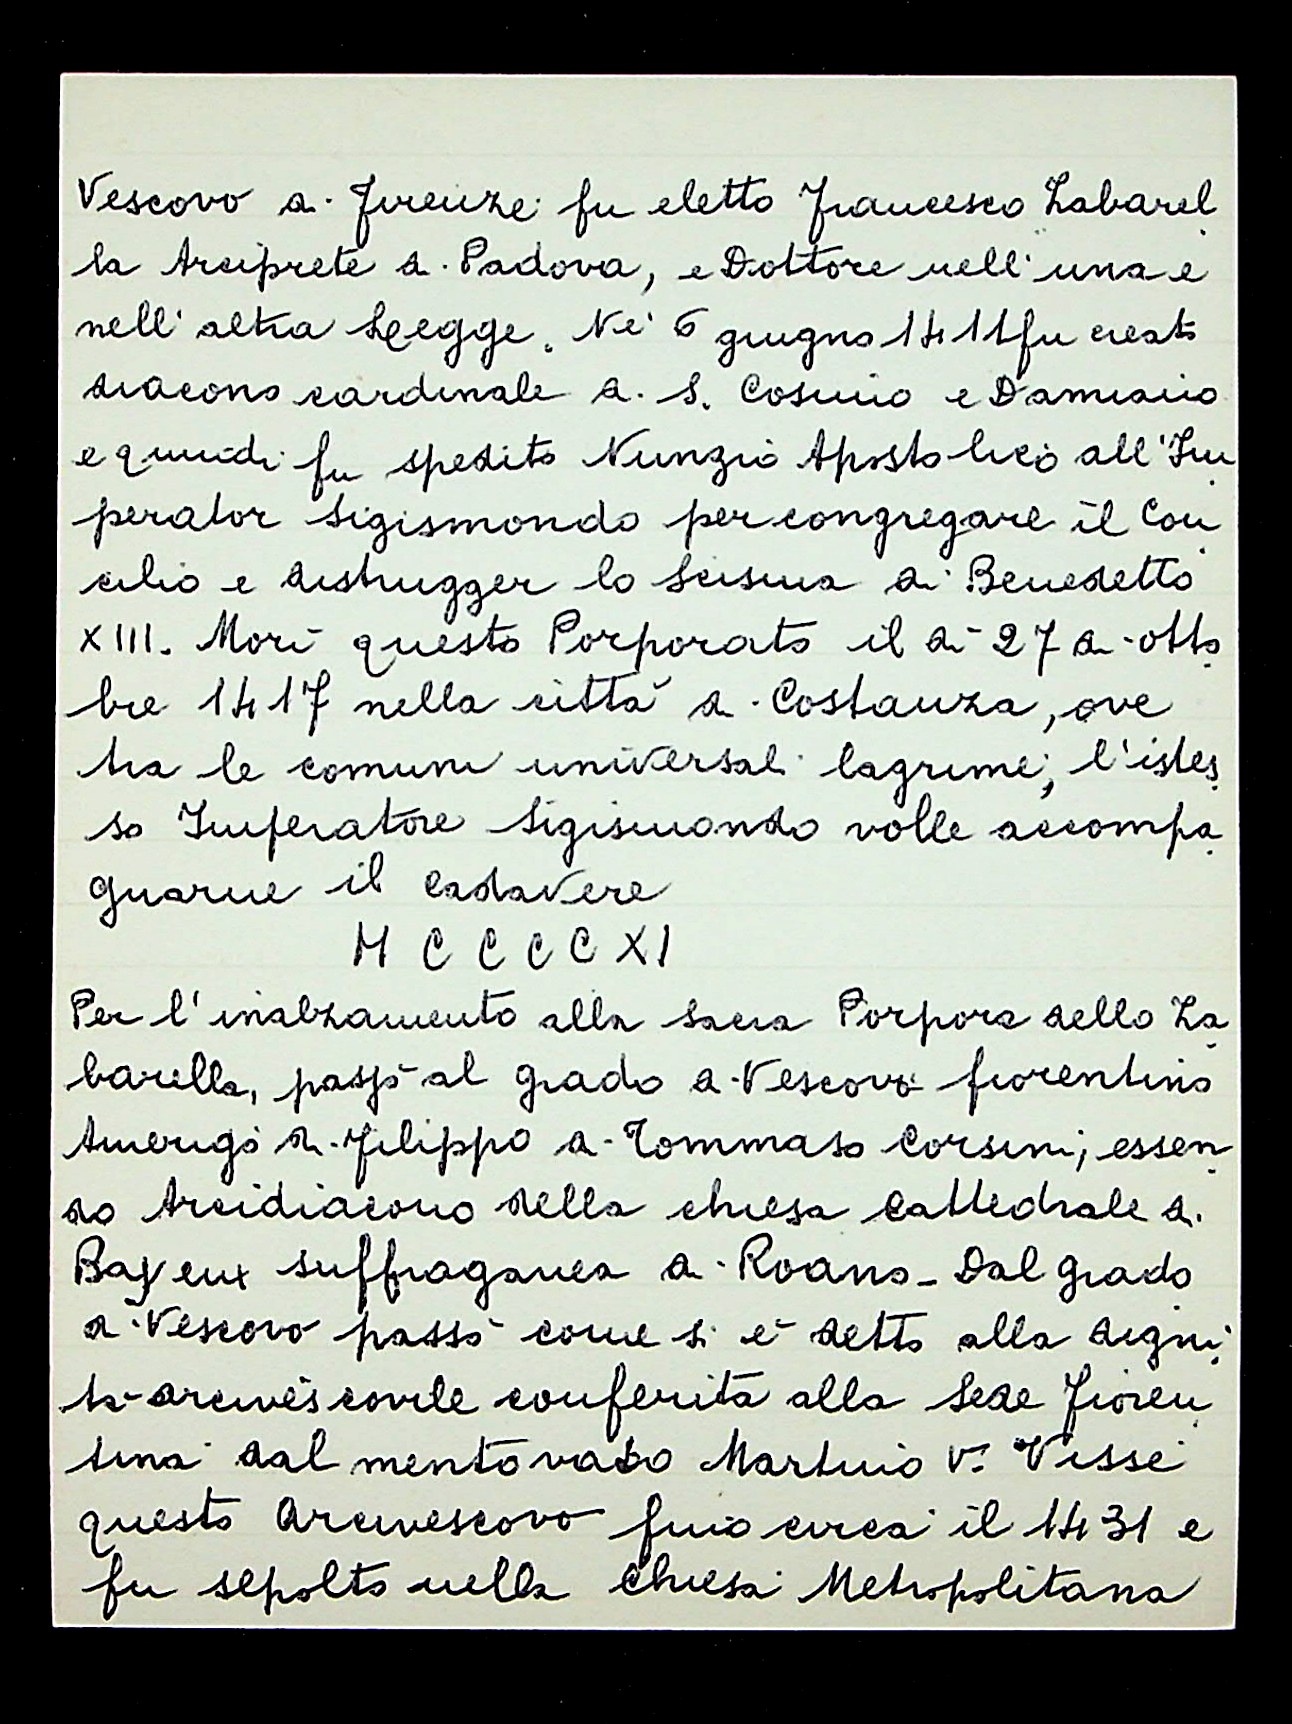 Vescovo di Firenze fu eletto Francesco Zabarel
la Arciprete di Padova, e Dottore nell'una e
nell'altra Legge. Ne' 6 giugno 1411 fu creato
diacono cardinale di S. Cosimo e Damiano
e quindi fu spedito Nunzio Apostolico all'Im
perator Sigismondo per congregare il Con
cilio e distrugger lo Scisma di Benedetto
XIII. Morì questo Porporato il dì 27 di otto
bre 1417 nella città di Costanza, ove
tra le comuni universali lagrime, l'istes
so Imperatore Sigismondo volle accompa
gnarne il cadavere
M C C C C X I
Per l'inalzamento alla Sacra Porpora dello Za
barella, passò al grado di Vescovo fiorentino
Amerigo di Filippo di Tommaso Corsini, essen
do Arcidiacono della chiesa Cattedrale di
Bayeux suffraganea di Roano - Dal grado
di Vescovo passò come si è detto alla digni
tà arcivescovile conferita alla Sede Fioren
tina dal mentovato Martino V. Visse
questo Arcivescovo fino circa il 1431 e
fu sepolto nella Chiesa Metropolitana